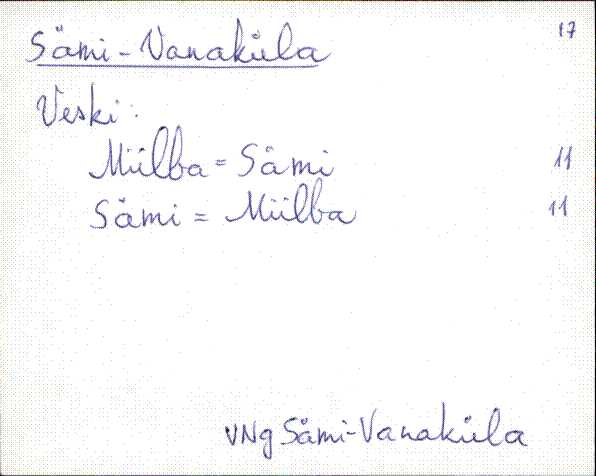 Sämi-Vanaküla 17
Veski:
Miilba = Sämi 11
Sämi = Miilba 11
VNg Sämi-Vanaküla